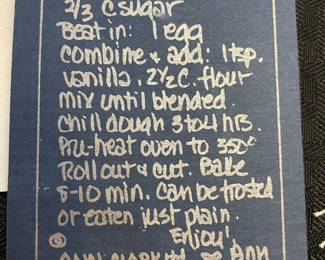 2/3 c sugar
Beat in: 1 egg
combine & add: 1 tsp.
vanilla. 2 1/2 c. flour
mix until blended.
chill dough 3 to 4 hrs.
Pre-heat oven to 350°
Roll out & cut. Bake
8-10 min. can be frosted
or eaten just plain.
Enjoy!
Ann